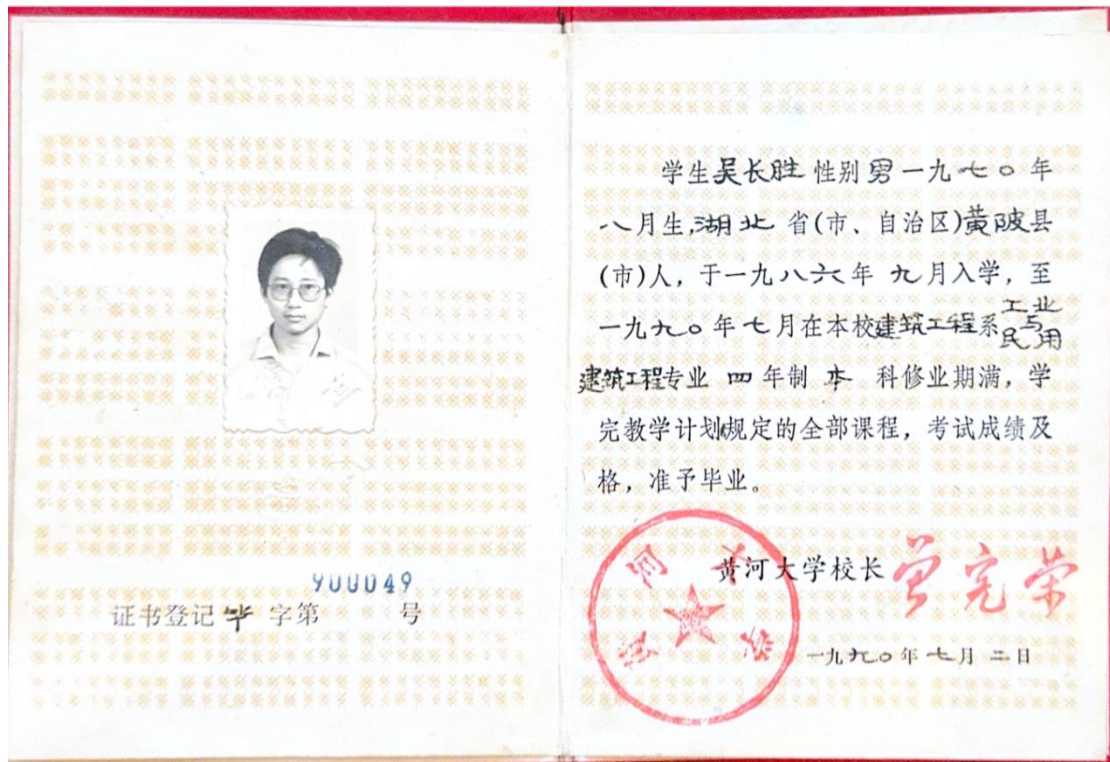 900049
证书登记毕字第 号
学生吴长胜性别男一九七〇年
八月生,湖北省(市、自治区)黄陂县
(市)人，于一九八六年九月入学，至
一九九〇年七月在本校建筑工程系工业与民用
建筑工程专业四年制本科修业期满，学
完教学计划规定的全部课程，考试成绩及
格，准予毕业。
黄河大学校长
黄河大学
一九九〇年七月二日